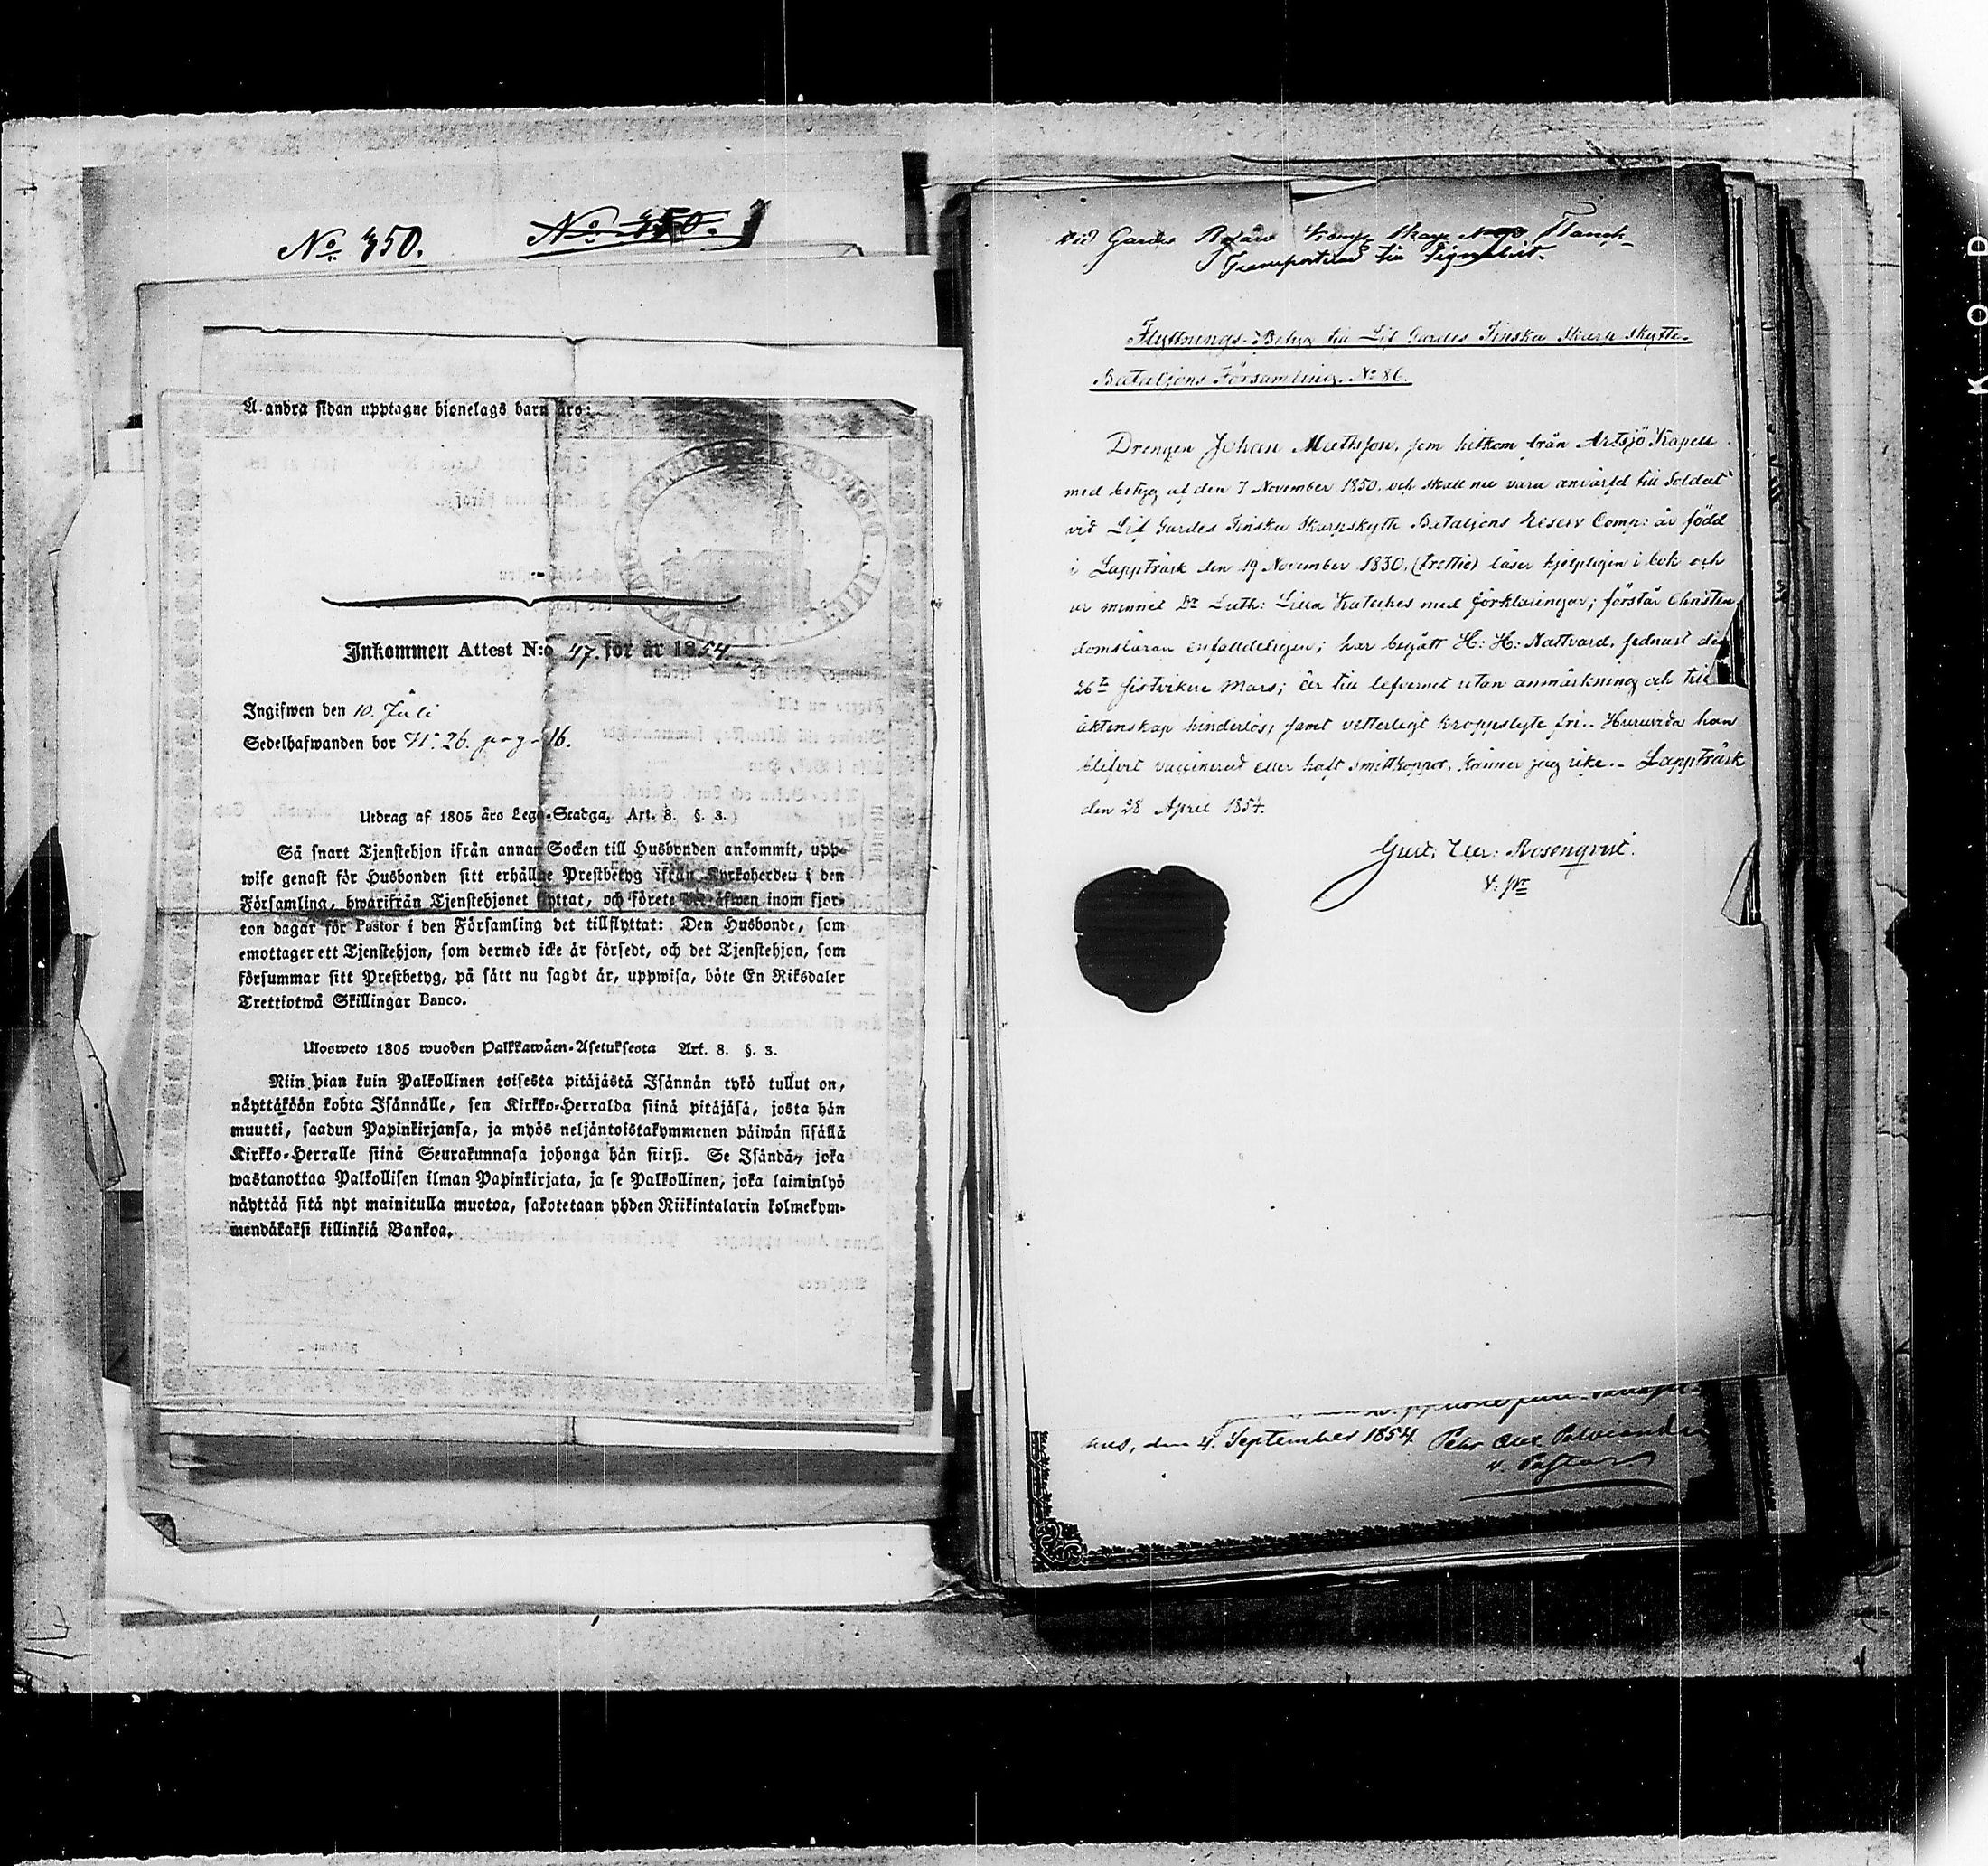 No 450.
No 450.
Å andra sidan upptagne hjonelags barn äro:
Inkommen Attest N:o 47. för år 1854.
Ingifwen den 10. Juli
Sedelhafwanden bor N:o 26. pag. 16.
Utdrag af 1805 års Lego-Stadga, Art. 8. §. 3.
Så snart Tjenstehjon ifrån annan Socken till Husbonden ankommit, upp-
wise genast för Husbonden sitt erhållne Prestbetyg ifrån Kyrkoherden i den
Församling, hwarifrån Tjenstehjonet flyttat, och förete det äfwen inom fjor-
ton dagar för Pastor i den Församling det tillflyttat: Den Husbonde, som
emottager ett Tjenstehjon, som dermed icke är försedt, och det Tjenstehjon, som
försummar sitt Prestbetyg, på sätt nu sagdt är, uppwisa, böte En Riksdaler
Trettiotwå Skillingar Banco.
Ulosweto 1805 wuoden Palkkawäen-Asetuksesta Art. 8. §. 3.
Niin pian kuin Palkollinen toisesta pitäjästä Isännän tykö tullut on,
näyttäköön kohta Isännälle, sen Kirkko-Herralda siinä pitäjäsä, josta hän
muutti, saadun Papinkirjansa, ja myös neljäntoistakymmenen päiwän sisällä
Kirkko-Herralle siinä Seurakunnasa johonga hän siirsi. Se Isändä, joka
wastanottaa Palkollisen ilman Papinkirjata, ja se Palkollinen, joka laiminlyö
näyttää sitä nyt mainitulla muotoa, sakotetaan yhden Riikintalarin kolmekym-
mendäkaksi killinkiä Bankoa.
Vid Gardes
Transporterad till Signalist.
Flyttnings-Betyg till Lif Gardes Finska Skarp Skytte-
Bataljons Församling. No 86.
Drengen Johan Mattsson, som hitkom från Artsjö Kapell
med betyg af den 7 November 1850. och skall nu vara anvärfd till Soldat
vid Lif Gardes Finska Skarpskytte Bataljons Reserv Comp: är född
i Lappträsk den 19 November 1830. (trettio) läser hjelpligen i bok och
ur minnet Dr Luth: Lilla Kateches med förklaringar; förstår Christen
domsläran enfalldeligen; har begått H: H: Nattvard, sednast den
26te sistvikne Mars; är till lefvernet utan anmärkning och till
äktenskap hinderlös, samt vetterligt kroppslyte fri.. Huruvida han
blifvit vaccinerad eller haft smittkoppor, känner jag icke.. Lappträsk
den 28 April 1854.
Gust. Rosenqvist.
V. Pr
hus, den 4. September 1854. Pehr
v. Pastor
KOD